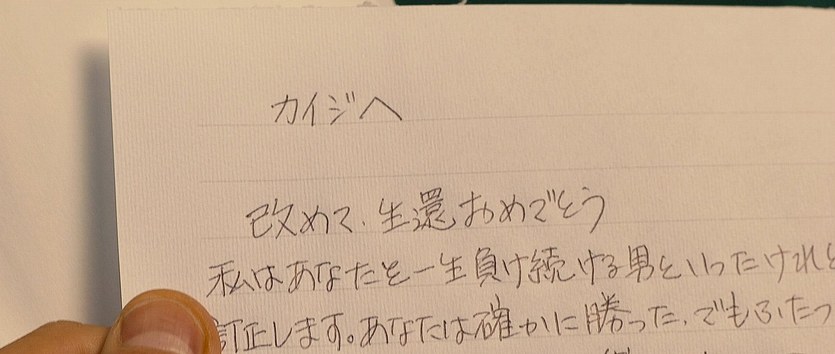 カイジへ
改めて、生還おめでとう
私はあなたを一生負け続ける男といったけれど
訂正します。あなたは確かに勝った、でもふたつ